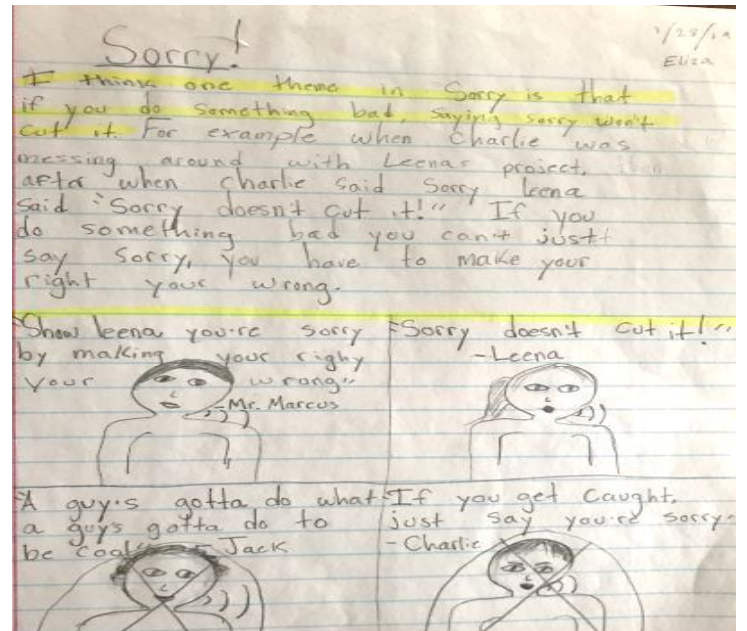 Sorry!
Eliza
I think one theme in Sorry is that
if you do something bad, saying sorry won't
cut it. For example when Charlie was
messing around with Leenas project,
after when Charlie said Sorry leena
said "Sorry doesn't cut it!" If you
do something bad you can't just
say Sorry, you have to make your
right your wrong.
"Show leena you're sorry
by making your righy
your wrong"
-Mr. Marcus
"Sorry doesn't cut it!"
-Leena
"A guy's gotta do what
a guys gotta do to
be cool" - Jack
"If you get Caught,
just say you're sorry"
- Charlie